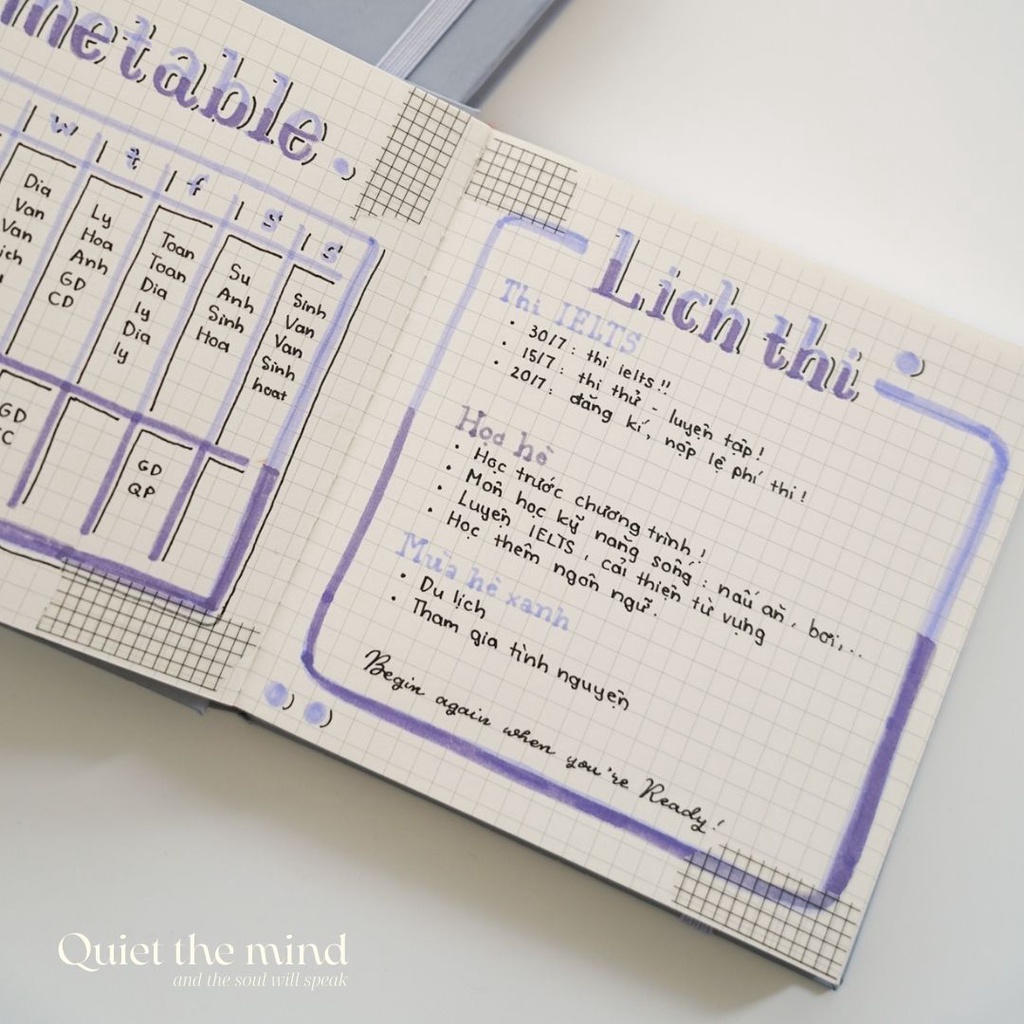 metable.
w t f s s
Dia
Van
Van
Ly
Hoa
Anh
GD
CD
Toan
Toan
Dia
ly
Dia
ly
Su
Anh
Sinh
Hoa
Sinh
Van
Van
Sinh
hoat
GD
QP
Lich thi
Thi IELTS
• 30/7: thi ielts!!
• 15/7: thi thử - luyện tập!
• 20/7: đăng kí, nộp lệ phí thi!
Học hè
• Học trước chương trình!
• Môn học kỹ năng sống: nấu ăn, bơi,...
• Luyện IELTS, cải thiện từ vựng
• Học thêm ngôn ngữ.
Mùa hè xanh
• Du lịch
• Tham gia tình nguyện
Begin again when you're Ready!
Quiet the mind
and the soul will speak